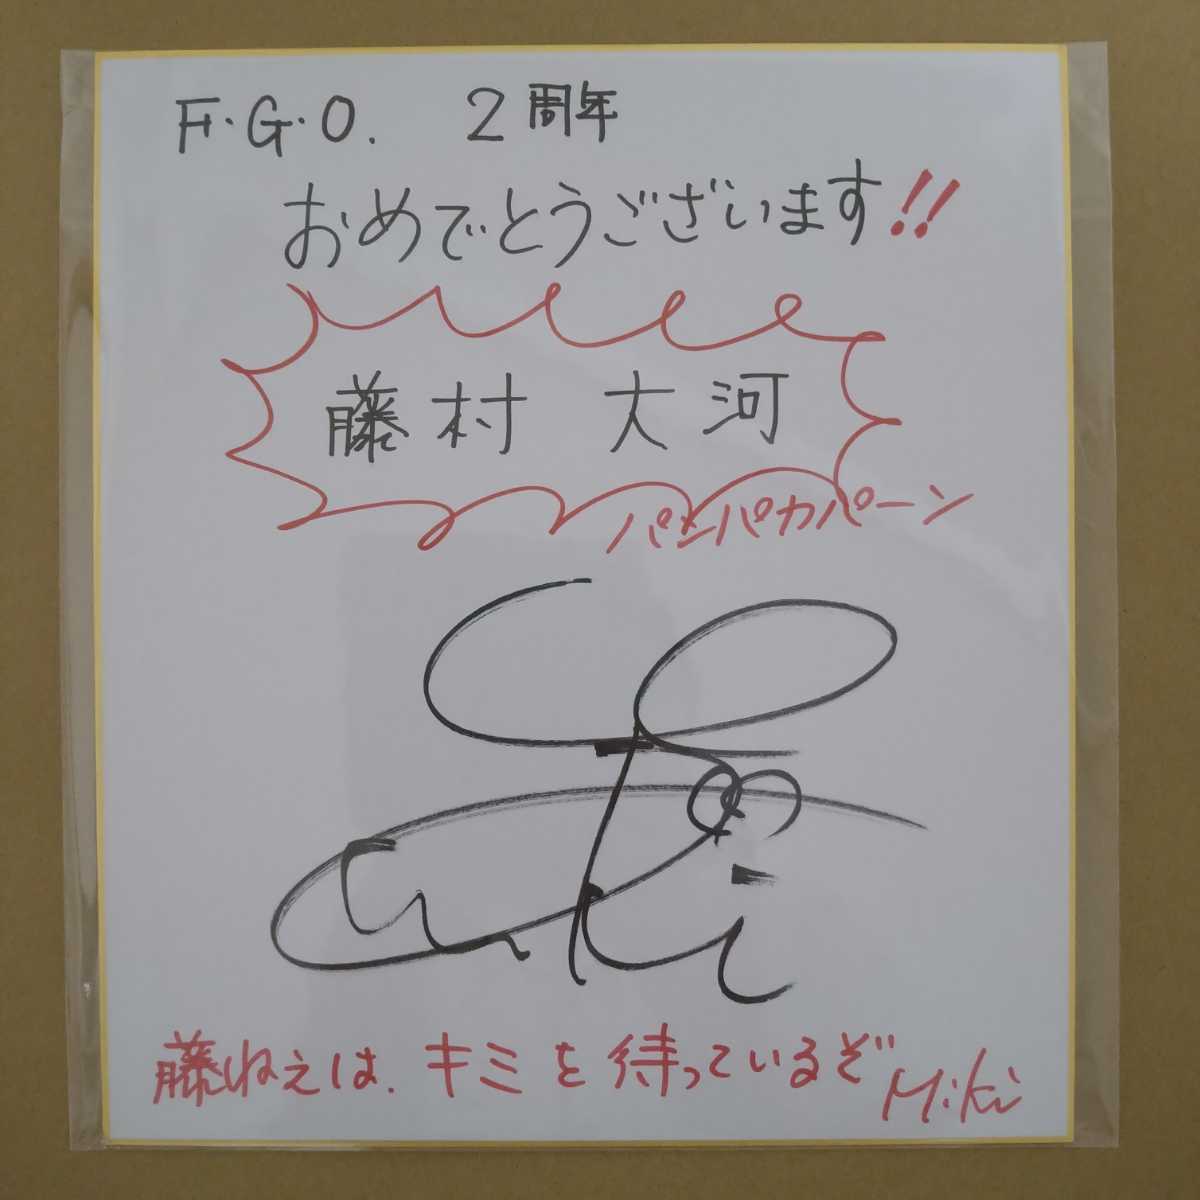 F・G・O. 2周年
おめでとうございます!!
藤村 大河
パンパカパーン
藤ねえは、キミを待っているぞ
Miki